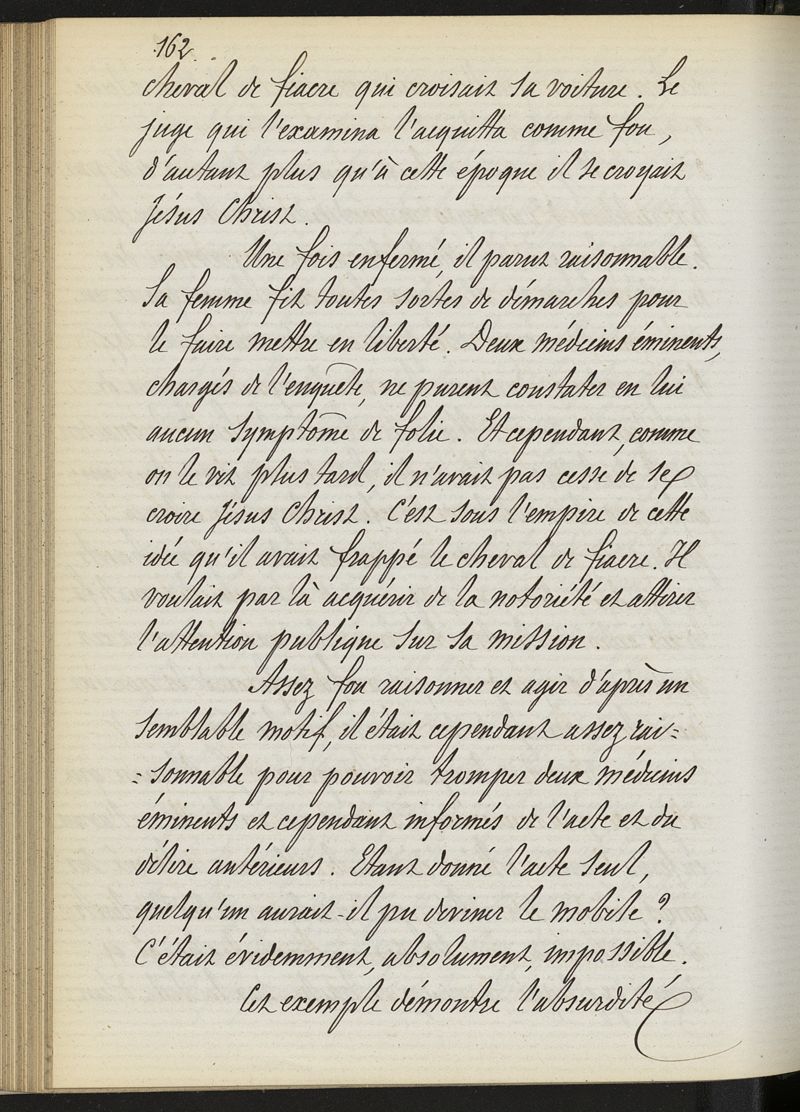 162
cheval de fiacre qui croisait sa voiture. Le
juge qui l'examina l'acquitta comme fou,
d'autant plus qu'à cette époque il se croyait
Jésus Christ.
Une fois enfermé, il parut raisonnable.
Sa femme fit toutes sortes de démarches pour
le faire mettre en liberté. Deux médecins éminents,
chargés de l'enquête, ne purent constater en lui
aucun symptôme de folie. Et cependant, comme
on le vit plus tard, il n'avait pas cessé de se
croire Jésus Christ. C'est sous l'empire de cette
idée qu'il avait frappé le cheval de fiacre. Il
voulait par là acquérir de la notoriété et attirer
l'attention publique sur sa mission.
Assez fou raisonner et agir d'après un
semblable motif, il était cependant assez rai=
=sonnable pour pouvoir tromper deux médecins
éminents et cependant informés de l'acte et du
délire antérieurs. Etant donné l'acte seul,
quelqu'un aurait-il pu deviner le mobile?
C'était évidemment, absolument, impossible.
Cet exemple démontre l'absurdité